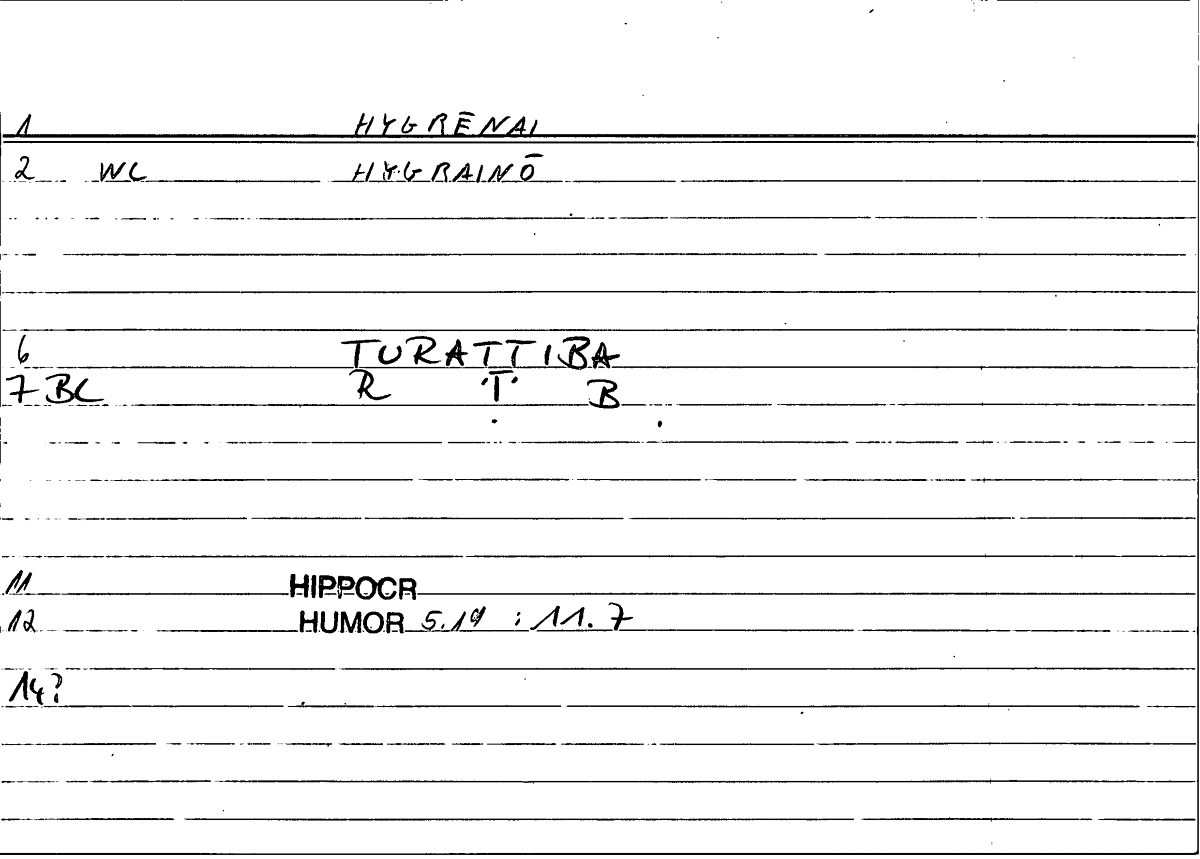 1 HYGRĒNAI
2 WC HYGRAINŌ
6 TURATTIBA
7 BC R Ṭ B
11 HIPPOCR
12 HUMOR 5.19 : 11.7
14?